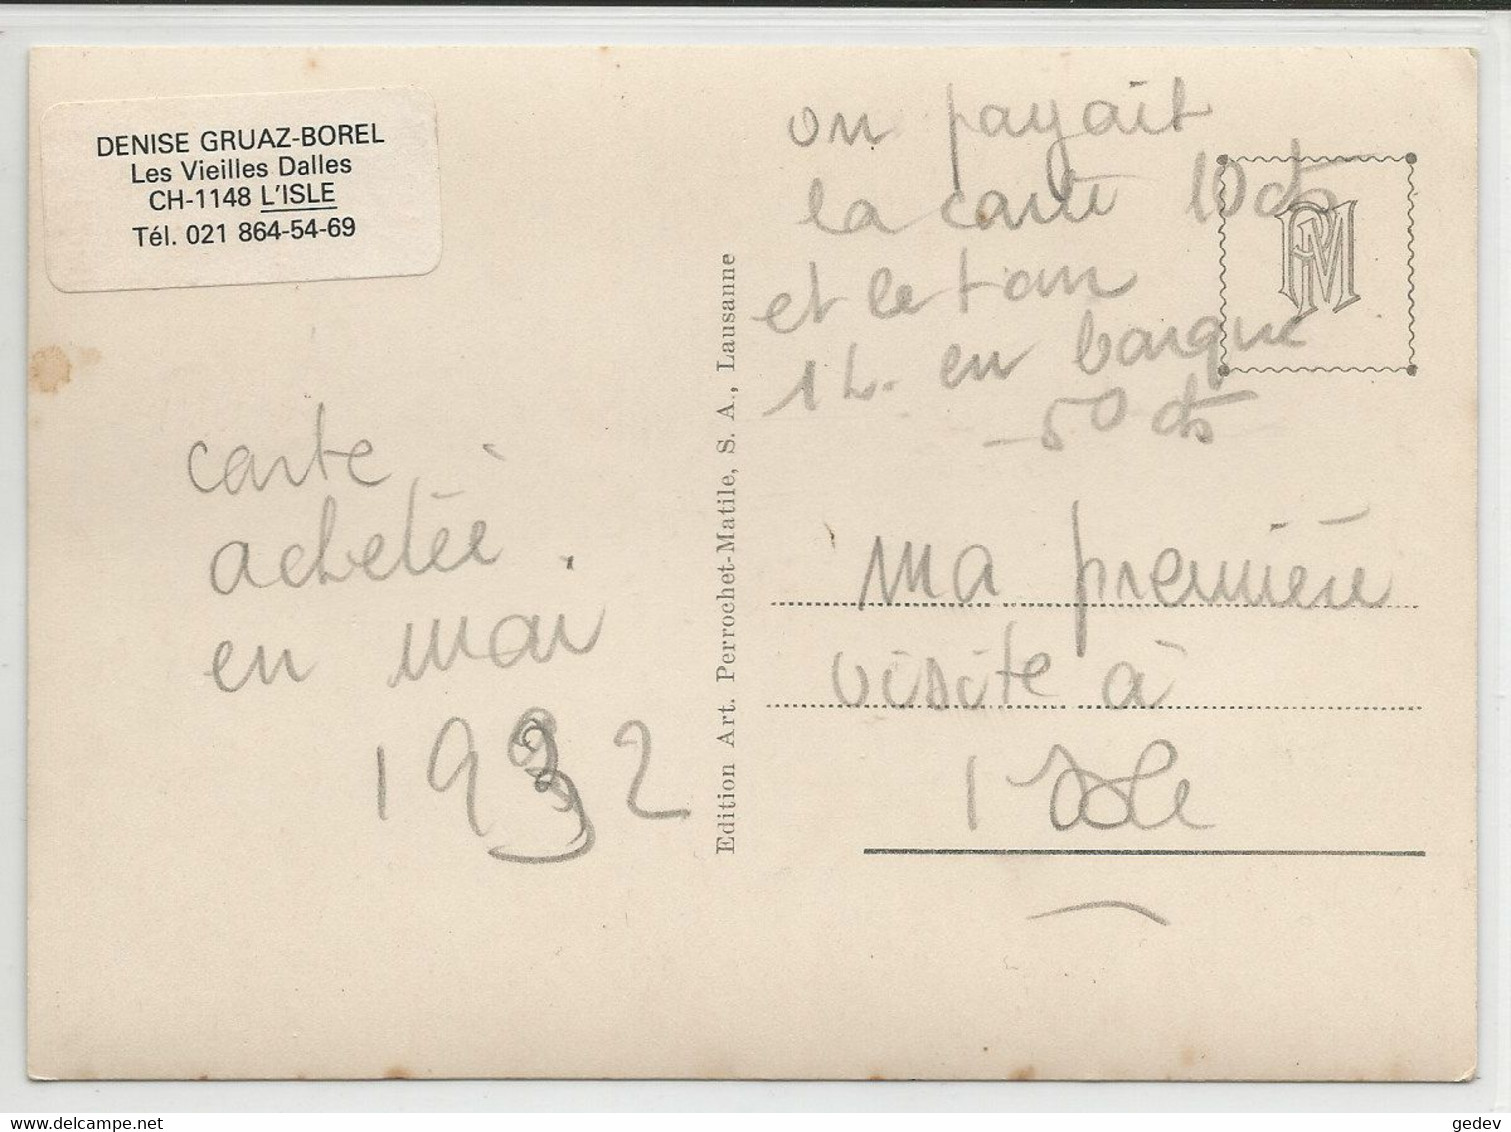 DENISE GRUAZ-BOREL
Les Vieilles Dalles
CH-1148 L'ISLE
Tél. 021 864-54-69
carte
achetée
en mai
1932
Edition Art. Perrochet-Matile, S. A., Lausanne
on payait
la carte 10 cts
et le tour
1 h. en barque
50 cts
PM
ma première
visite à
l'Isle
delcampe.net
gedev